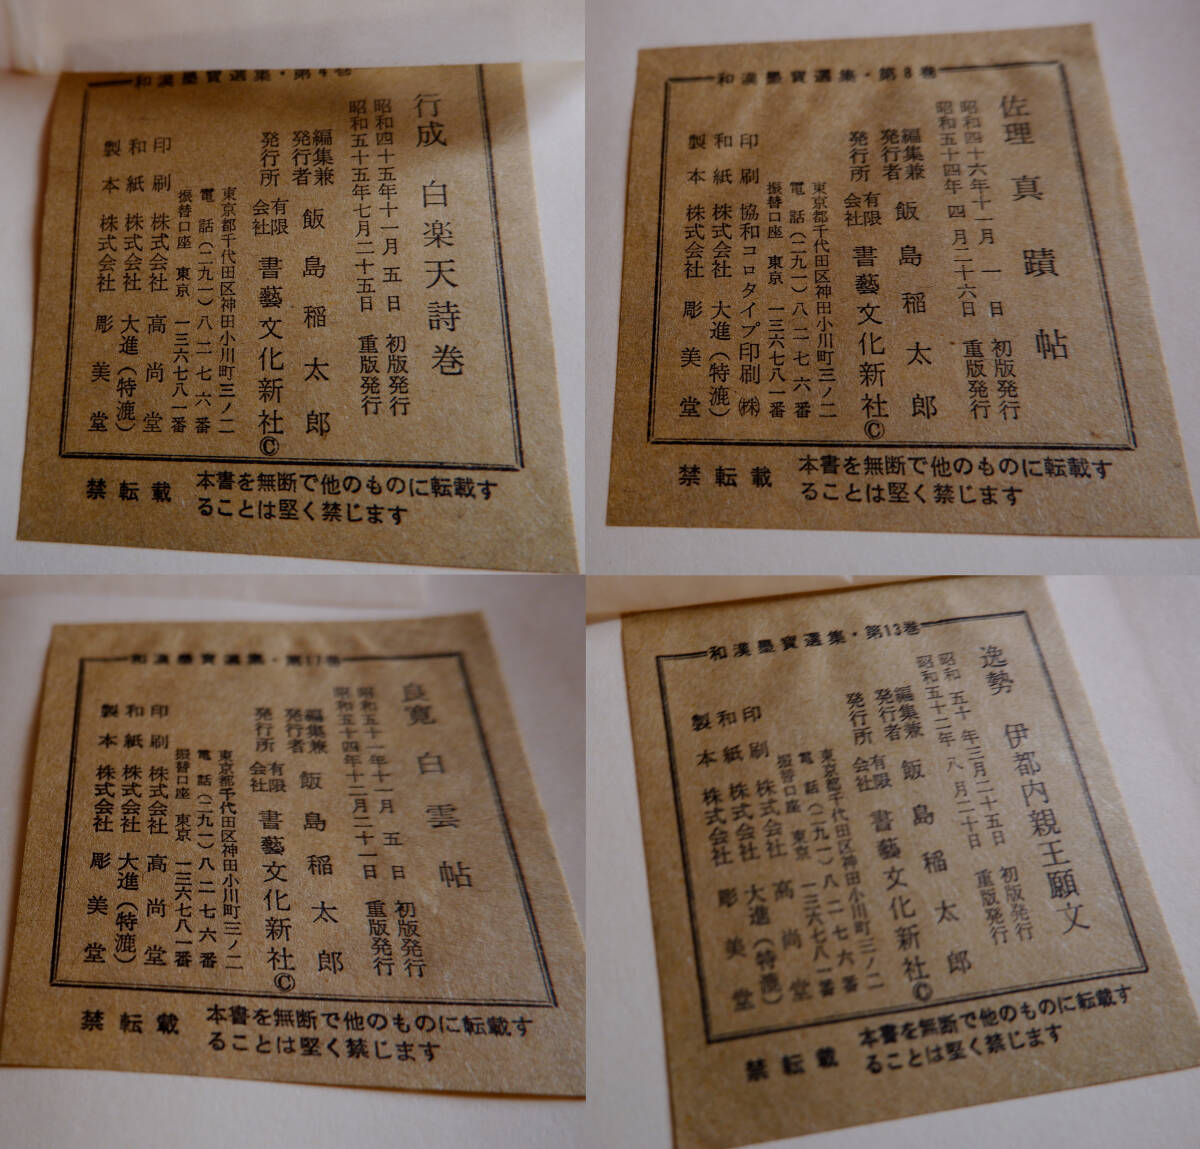 和漢墨寶選集・第4巻
行成 白楽天詩巻
昭和四十五年十一月五日 初版発行
昭和五十五年七月二十五日 重版発行
編集兼
発行者 飯島稲太郎
発行所 有限
会社 書藝文化新社©
東京都千代田区神田小川町三ノ二
電話(二九一)八二七六番
振替口座 東京 一三六七八一番
印刷 株式会社 高尚堂
和紙 株式会社 大進(特漉)
製本 株式会社 彫美堂
禁転載 本書を無断で他のものに転載す
ることは堅く禁じます
和漢墨寶選集・第8巻
佐理 真蹟帖
昭和四十六年十一月一日 初版発行
昭和五十四年四月二十六日 重版発行
編集兼
発行者 飯島稲太郎
発行所 有限
会社 書藝文化新社©
東京都千代田区神田小川町三ノ二
電話(二九一)八二七六番
振替口座 東京 一三六七八一番
印刷 協和コロタイプ印刷㈱
和紙 株式会社 大進(特漉)
製本 株式会社 彫美堂
禁転載 本書を無断で他のものに転載す
ることは堅く禁じます
和漢墨寶選集・第17巻
良寛 白雲帖
昭和五十一年十一月五日 初版発行
昭和五十四年十二月二十一日 重版発行
編集兼
発行者 飯島稲太郎
発行所 有限
会社 書藝文化新社©
東京都千代田区神田小川町三ノ二
電話(二九一)八二七六番
振替口座 東京 一三六七八一番
印刷 株式会社 高尚堂
和紙 株式会社 大進(特漉)
製本 株式会社 彫美堂
禁転載 本書を無断で他のものに転載す
ることは堅く禁じます
和漢墨寶選集・第13巻
逸勢 伊都内親王願文
昭和五十年三月二十五日 初版発行
昭和五十二年八月二十日 重版発行
編集兼
発行者 飯島稲太郎
発行所 有限
会社 書藝文化新社©
東京都千代田区神田小川町三ノ二
電話(二九一)八二七六番
振替口座 東京 一三六七八一番
印刷 株式会社 高尚堂
和紙 株式会社 大進(特漉)
製本 株式会社 彫美堂
禁転載 本書を無断で他のものに転載す
ることは堅く禁じます